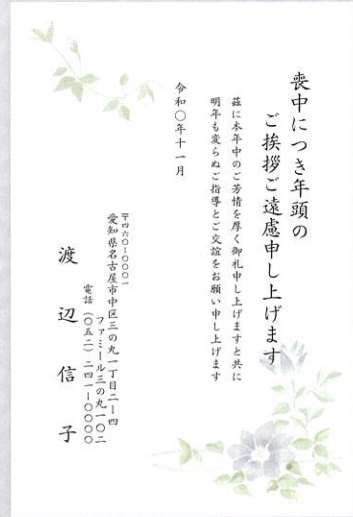 喪中につき年頭の
ご挨拶ご遠慮申し上げます
茲に本年中のご芳情を厚く御礼申し上げますと共に
明年も変らぬご指導とご交誼をお願い申し上げます
令和〇年十一月
〒四六〇-〇〇〇一
愛知県名古屋市中区三の丸一丁目二ー四
ファミール三の丸一〇二
電話(〇五二)二四一-〇〇〇〇
渡辺信子